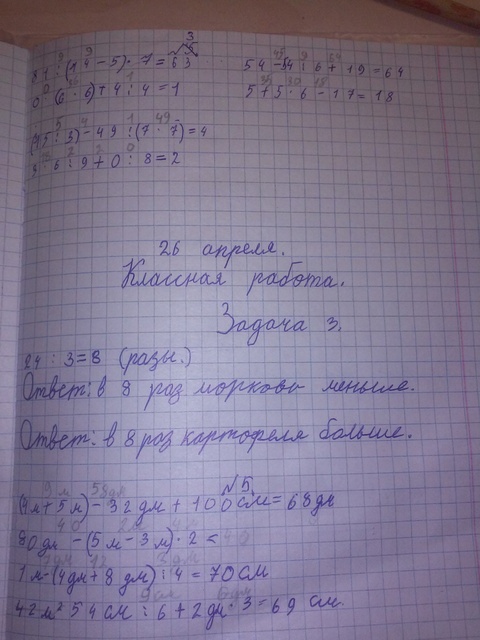 81 : (14 - 5) · 7 = 63
0 · (6 · 6) + 4 : 4 = 1
(15 : 3) - 49 : (7 · 7) = 4
: 6 : 9 + 0 : 8 = 2
54 - 54 : 6 + 19 = 64
5 + 5 · 6 - 17 = 18
26 апреля.
Классная работа.
Задача 3.
24 : 3 = 8 (разы.)
Ответ: в 8 раз моркови меньше.
Ответ: в 8 раз картофеля больше.
№5.
(4м + 5м) - 32дм + 100см = 68дм
80дм - (5м - 3м) · 2 =
1м - (4дм + 8дм) : 4 = 70см
54см : 6 + 2дм · 3 = 69 см.